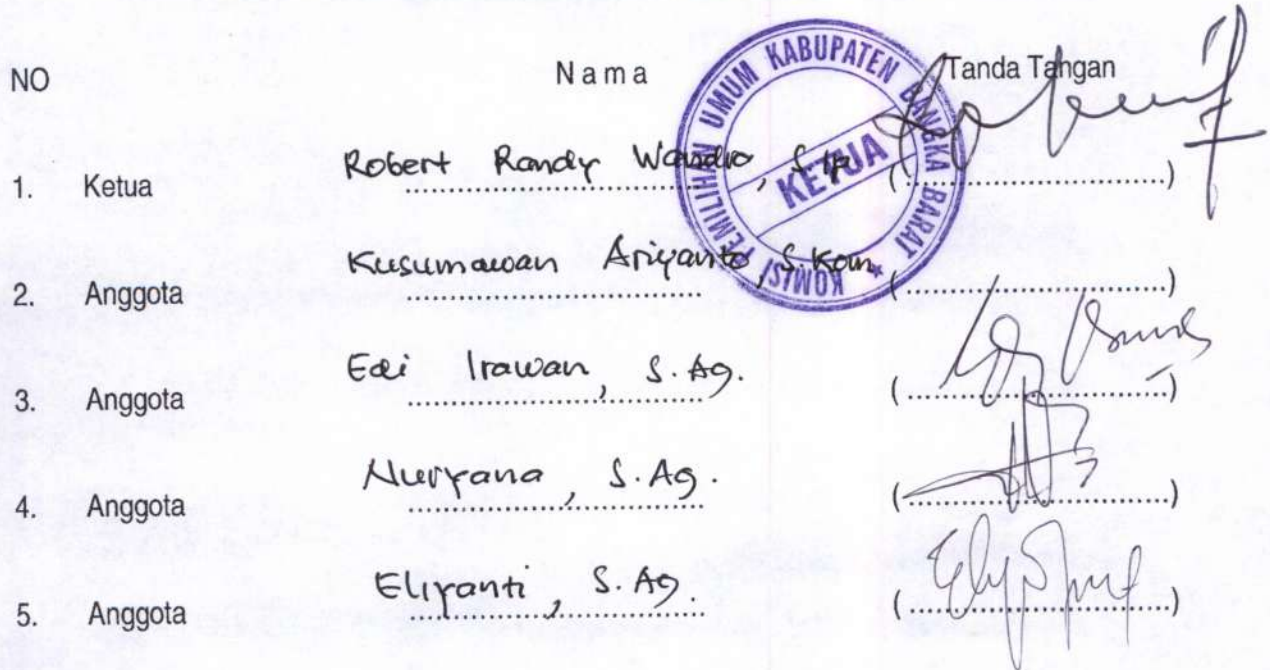 NO Nama Tanda Tangan
KOMISI PEMILIHAN UMUM KABUPATEN BANGKA BARAT
KETUA
1. Ketua Robert Randy Wardro, S.Ip (..............................)
2. Anggota Kusumawan Ariyanto, S.Kom (..............................)
3. Anggota Edi Irawan, S.Ag. (..............................)
4. Anggota Nuryana, S.Ag. (..............................)
5. Anggota Eliyanti, S.Ag. (..............................)